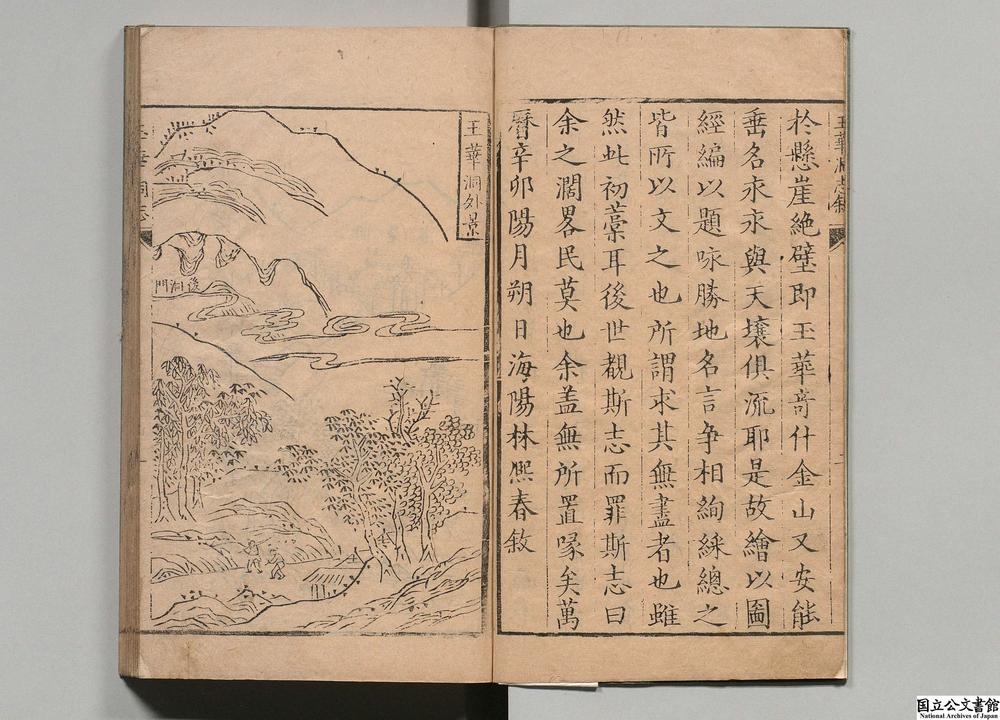 於懸崖絶壁即玉華竒什金山又安能
垂名永永與天壤俱流耶是故繪以圖
經編以題咏勝地名言争相絢綵總之
皆所以文之也所謂求其無盡者也雖
然此初藁耳後世覩斯志而罪斯志曰
余之濶畧民莫也余盖無所置喙矣萬
曆辛卯陽月朔日海陽林熈春敘
玉華洞志敘
二
玉華洞外景
後洞門
國立公文書館
National Archives of Japan